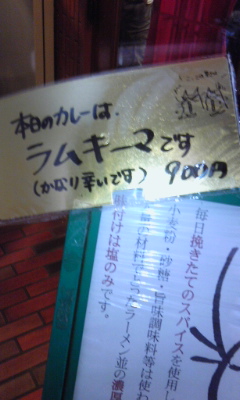 本日のカレーは
ラムキーマです
(かなり辛いです) 900円
毎日挽きたてのスパイスを使用し
小麦粉・砂糖・旨味調味料等は使わ
量の材料で
ったラーメン並の濃厚
味付けは塩のみです。